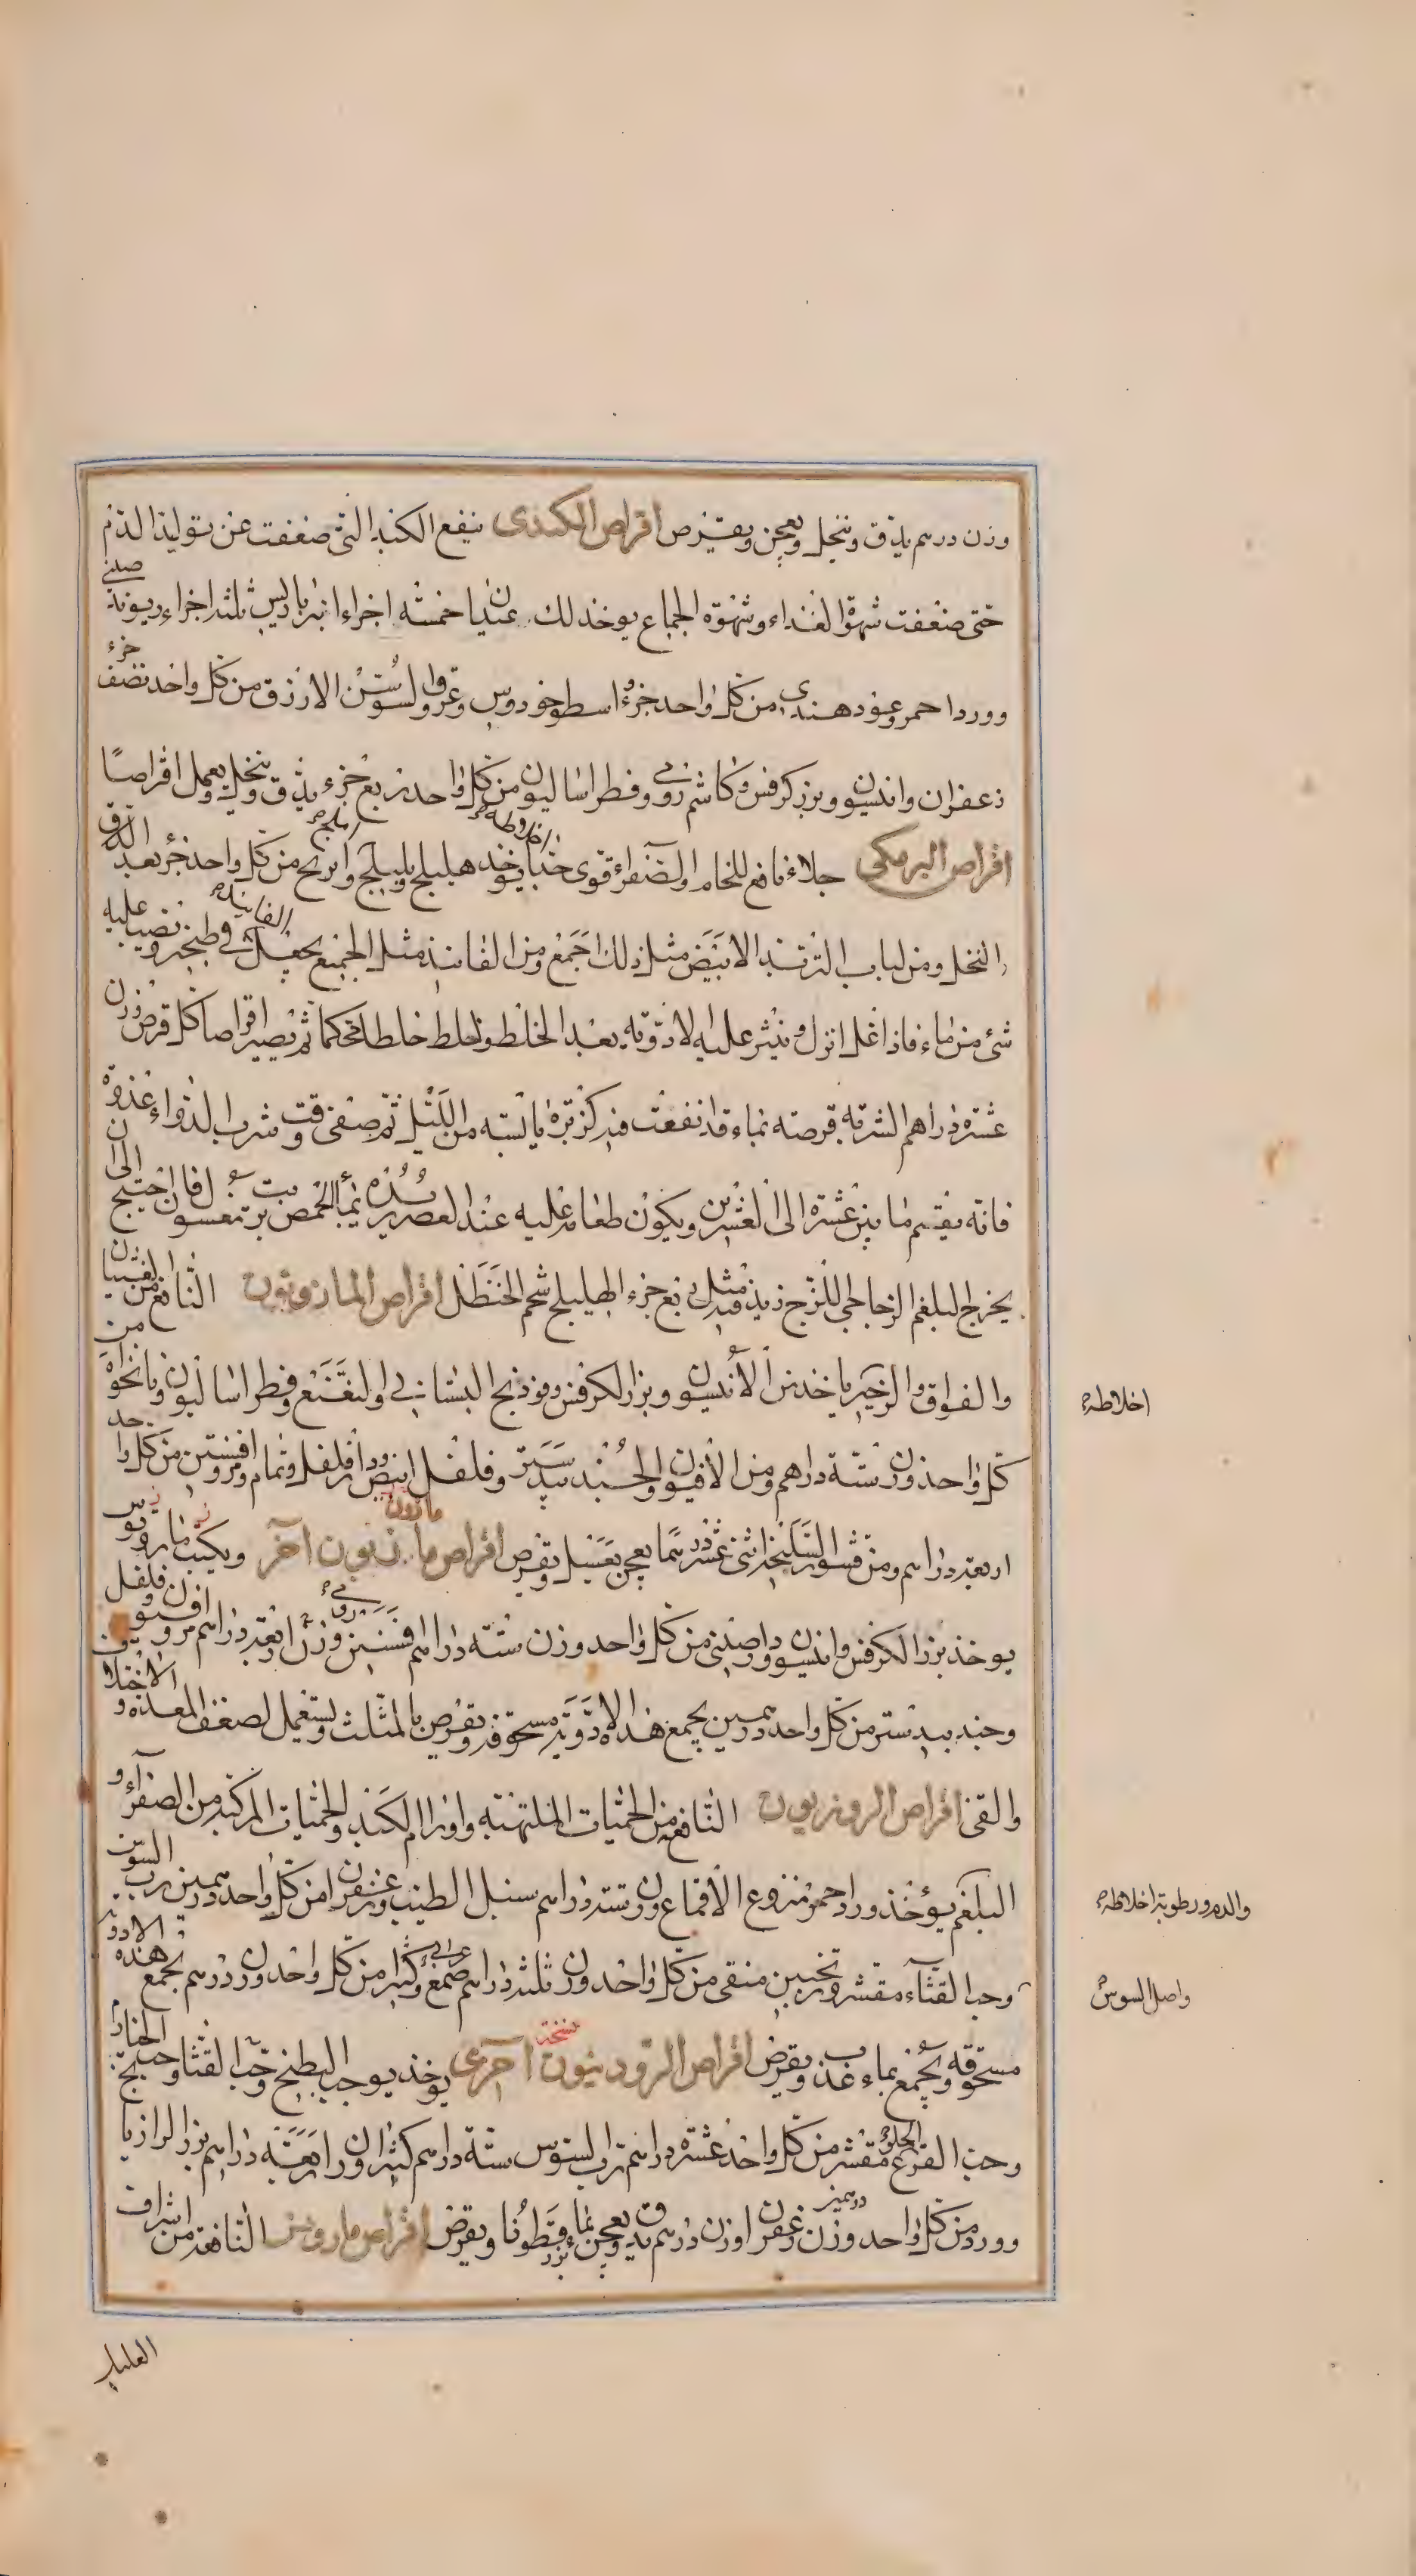 وزن درهم يدق وينخل ويعجن ويقرص اقراص الكندى ينفع الكبد التى ضعفت عن توليد الدم
حتى ضعفت شهوة الغذاء وشهوة الجماع يوخذ لك عيدانيا خمسه اجزاء انبرباريس ثلثه اجزاء ريوند صينى
وورد احمر وعود هندى من كل واحد جزء اسطوخودوس وعروق السوسن الازرق من كل واحد نصف جزء
زعفران وانيسون وبزر كرفس وكاشم رومى وفطراساليون من كل واحد ربع جزء يدق وينخل ويعمل اقراصًا
اقراص البرمكى جلاء نافع للخام والصفراء قوى جدا يوخذ هليلج وبليلج واملج من كل واحد جزء بعد الدق
والنخل ومن لباب التربد الابيض مثل ذلك اجمع ومن الفانيذ مثل الجميع يجعل الفانيذ فى طنجير ويصب عليه
شئ من ماء فاذا غلا انزل وينثر عليه الادوية بعد الخلط ويخلط خلطا محكما ثم يصير اقراصا كل قرص وزن
عشرة دراهم الشربه قرصه بماء قد نقعت فيه كزبرة يابسه من الليل ثم صفى وقت شرب الدواء غدوة
فانه يقيم ما بين عشرة الى العشرين ويكون طعامه عليه عند العصر بماء الحمص بزيت مغسول فان احتيج الى ان
يخرج البلغم الزجاجى اللزج زيد فيه مثل ربع جزء الهليلج شحم الحنظل اقراص المازريون النافع من الغثيان
والفواق والزحير ياخذ من الانيسون وبزر الكرفس وفوذنج البستانى او النعنع وفطراساليون ونانخواه من
كل واحد وزن ستة دراهم ومن الافيون والجندبيدستر وفلفل ابيض ودارفلفل وثمام ومر وافسنتين من كل واحد
اربعة دراهم ومن قشور السليخه اثنى عشر درهما يعجن بعسل ويقرص اقراص مازريون آخر ويكتب مارويوس
يوخذ بزر الكرفس وانيسون ودار صينى من كل واحد وزن ستة دراهم افسنتين رومى وزن اربعة دراهم مر وافيون وفلفل
وجندبيدستر من كل واحد درهمين يجمع هذه الادوية مسحوقة ويقرص بالمثلث ويستعمل لضعف المعدة والاختلاف
والقئ اقراص الزرنريون النافع من الحميات الملتهبه واورام الكبد والحميات المركبه من الصفراء و
البلغم يؤخذ ورد احمر منزوع الاقماع وزن ستة دراهم سنبل الطيب وزعفران من كل واحد درهمين رب السوس
وحب القثاء مقشر وترنجبين منقى من كل واحد وزن ثلثه دراهم صمغ عربى وكثيرا من كل واحد وزن درهم يجمع هذه الادوية
مسحوقة ويجمع بماء عذب ويقرص اقراص الزرودنيون نسخة اخرى يوخذ حب البطيخ وحب القثا وحب الخيار
وحب القرع الحلو مقشر من كل واحد عشرة دراهم رب السوس ستة دراهم كثيرا وزن اربعة دراهم بزر الرازيانج
وورد من كل واحد وزن درهمين زعفران وزن درهم يدق ويعجن بماء بزر قطونا ويقرص اقراص مارويس النافعة من اشراف
العليل
اخلاطه
والدم ورطوبة اخلاطه
واصل السوس